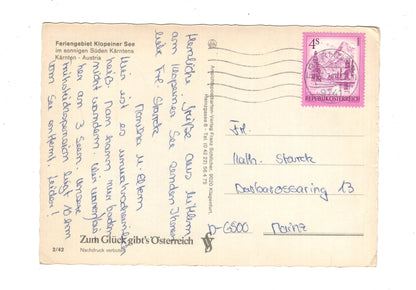 Feriengebiet Klopeiner See
im sonnigen Süden Kärntens
Kärnten - Austria
Herzliche Grüße aus
am Klopeiner See senden Ihnen
liebe Frl. Starck
Familie u. Eltern
Hier ist es unwahrscheinlich
heiß. Man kann nur baden
nicht wandern. Wir
an 3 Seen. Unsere
liegt 10 km
vom See entfernt. Leider!
2/42
Zum Glück gibt's Österreich
Nachdruck verboten
Ansichtskarten-Verlag Franz Schilcher, 9020 Klagenfurt,
6 - Tel. (0 42 22) 56 4 75
4 S
REPUBLIK ÖSTERREICH
Frl.
Kath. Starck
Barbarossaring 13
D-6500 Mainz